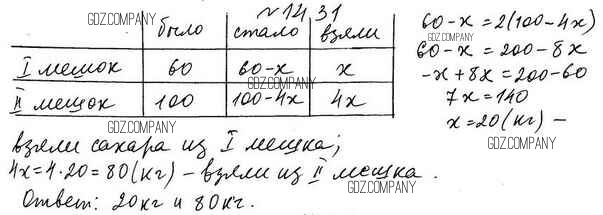 № 14.31
было стало взяли
I мешок 60 60-x x
II мешок 100 100-4x 4x
60-x=2(100-4x)
60-x=200-8x
-x+8x=200-60
7x=140
x=20(кг) –
взяли сахара из I мешка;
4x=4·20=80(кг) – взяли из II мешка.
Ответ: 20кг и 80кг.
GDZ.COMPANY
GDZ.COMPANY
GDZ.COMPANY
GDZ.COMPANY
GDZ.COMPANY
GDZ.COMPANY
GDZ.COMPANY